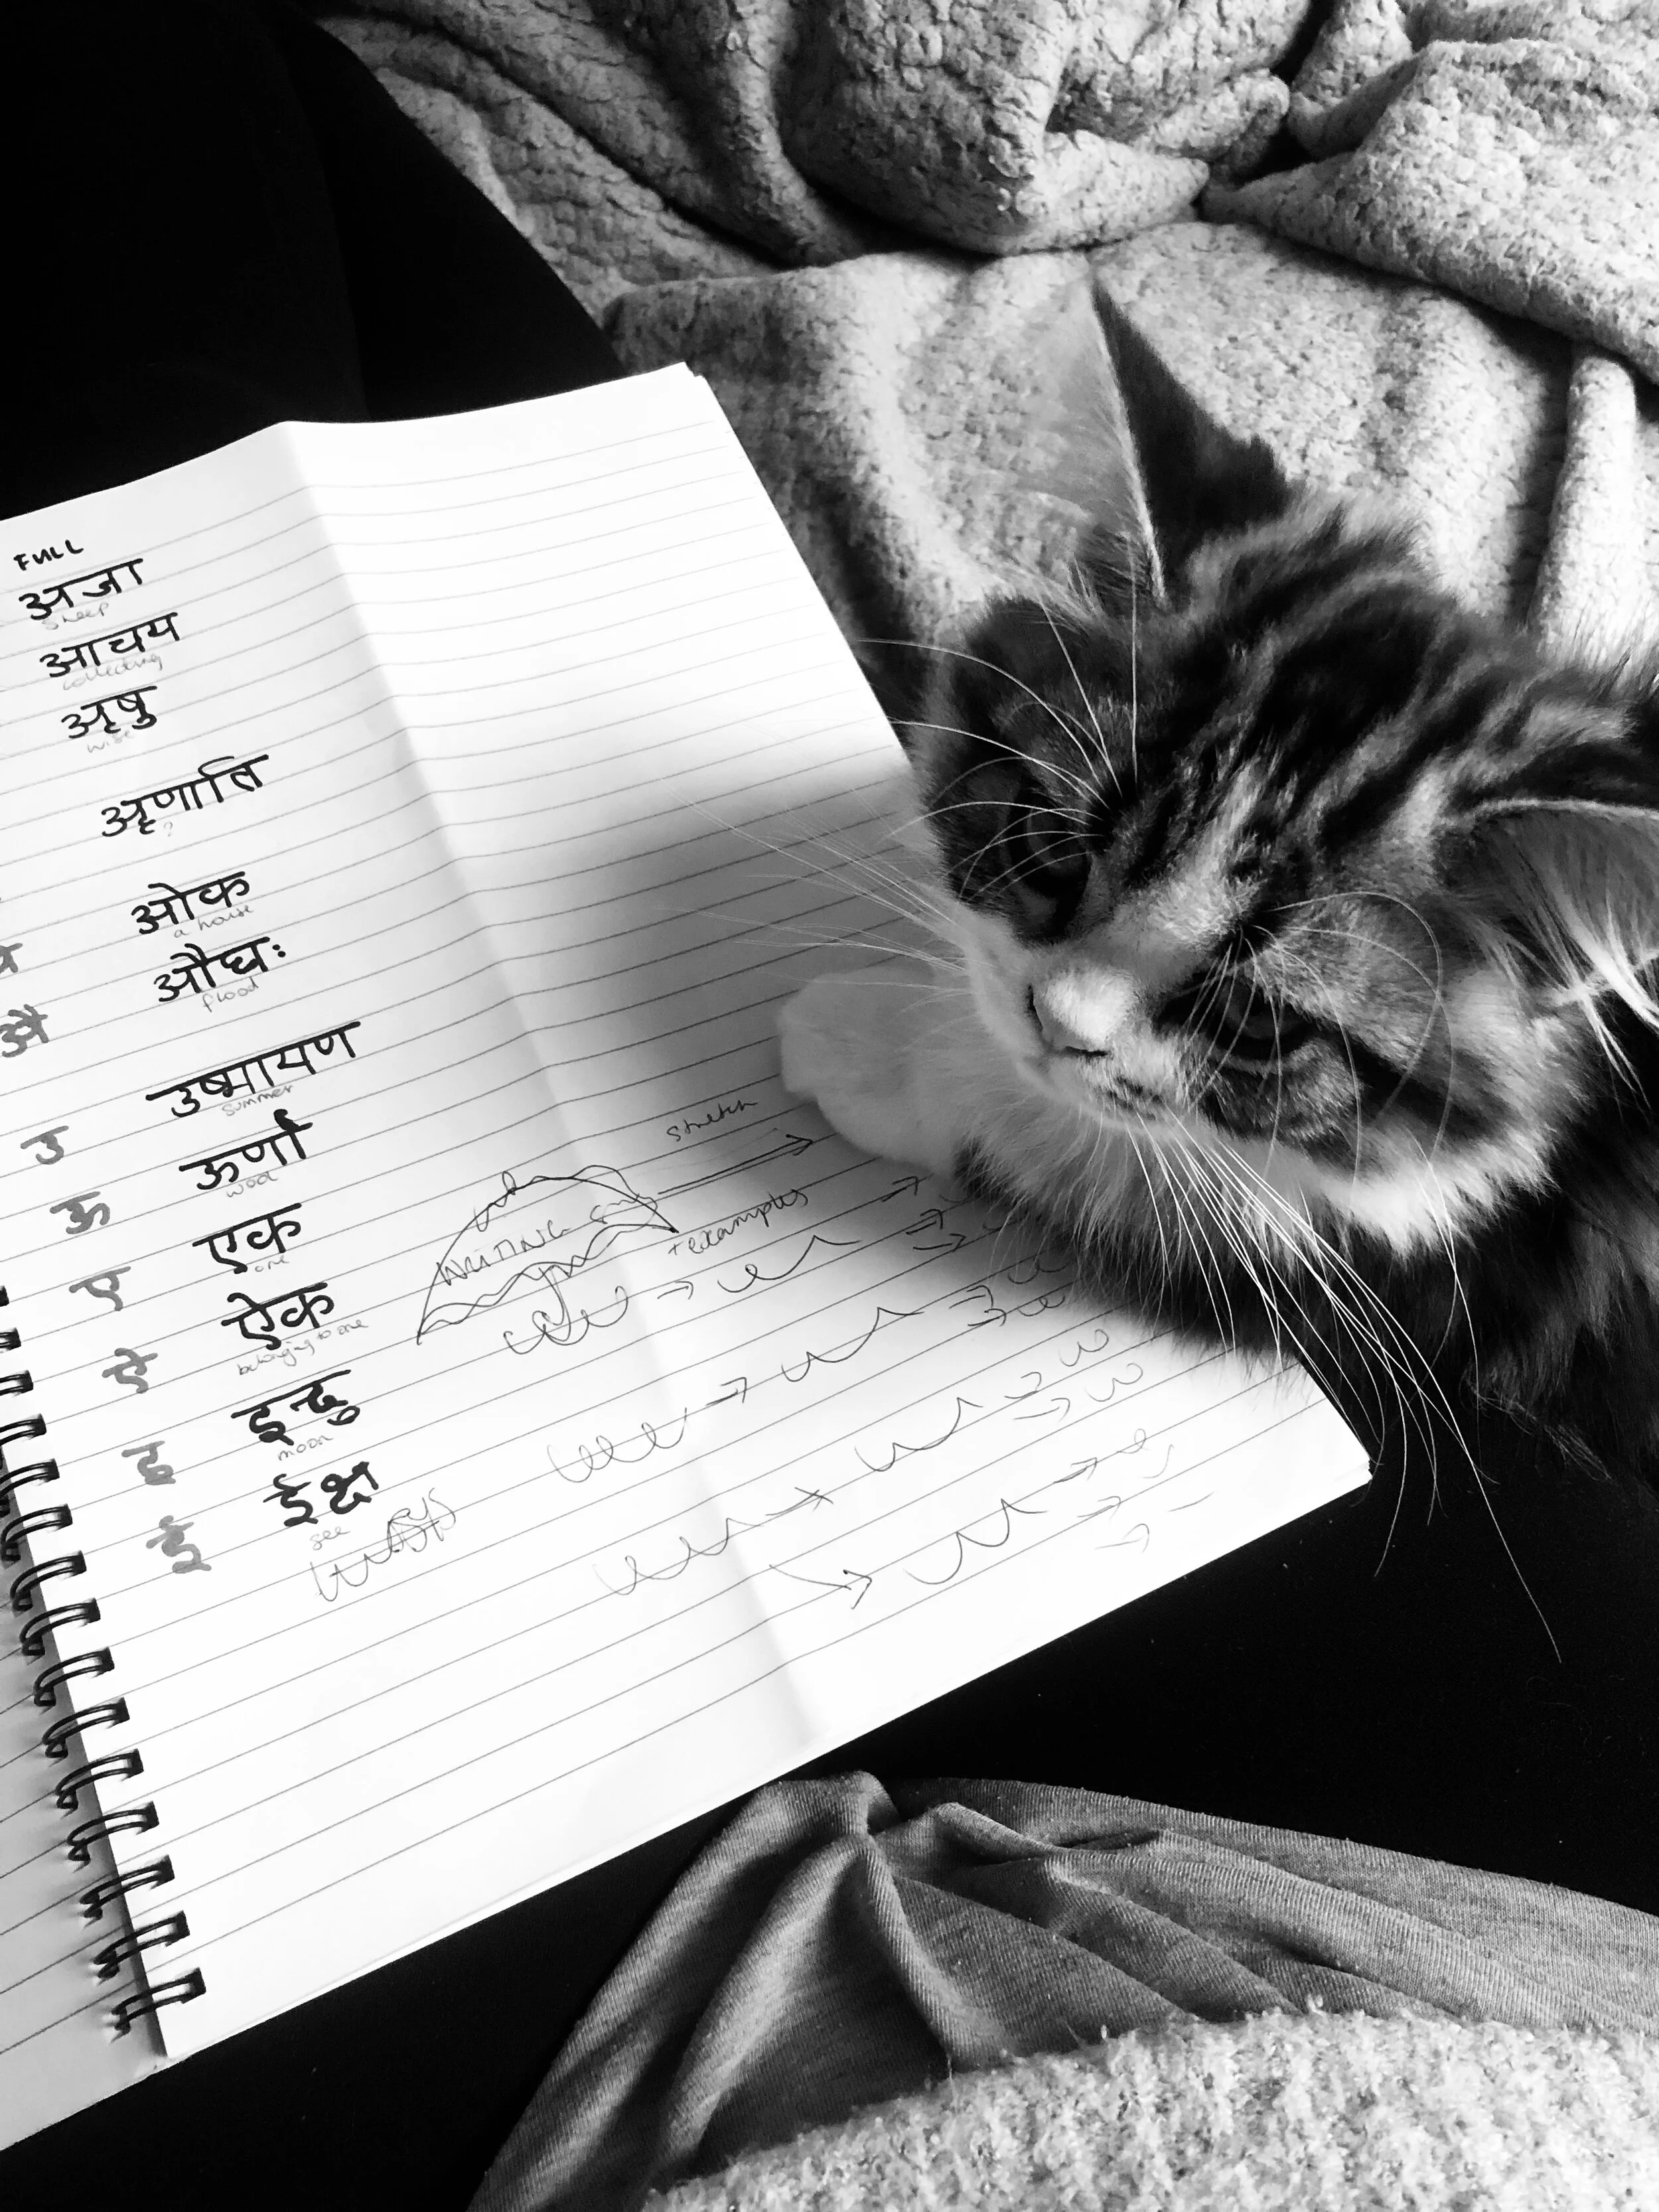 FULL
अजा
sheep
आचय
collecting
ऋषु
wise
ॠणाति
?
ओक
a house
औघः
flood
औ
उष्मायण
summer
उ
ऊर्णा
wool
ऊ
एक
one
ए
ऐक
belonging to one
ऐ
इन्दु
moon
इ
ईक्ष
see
ई
stretch
WRITING
+ examples